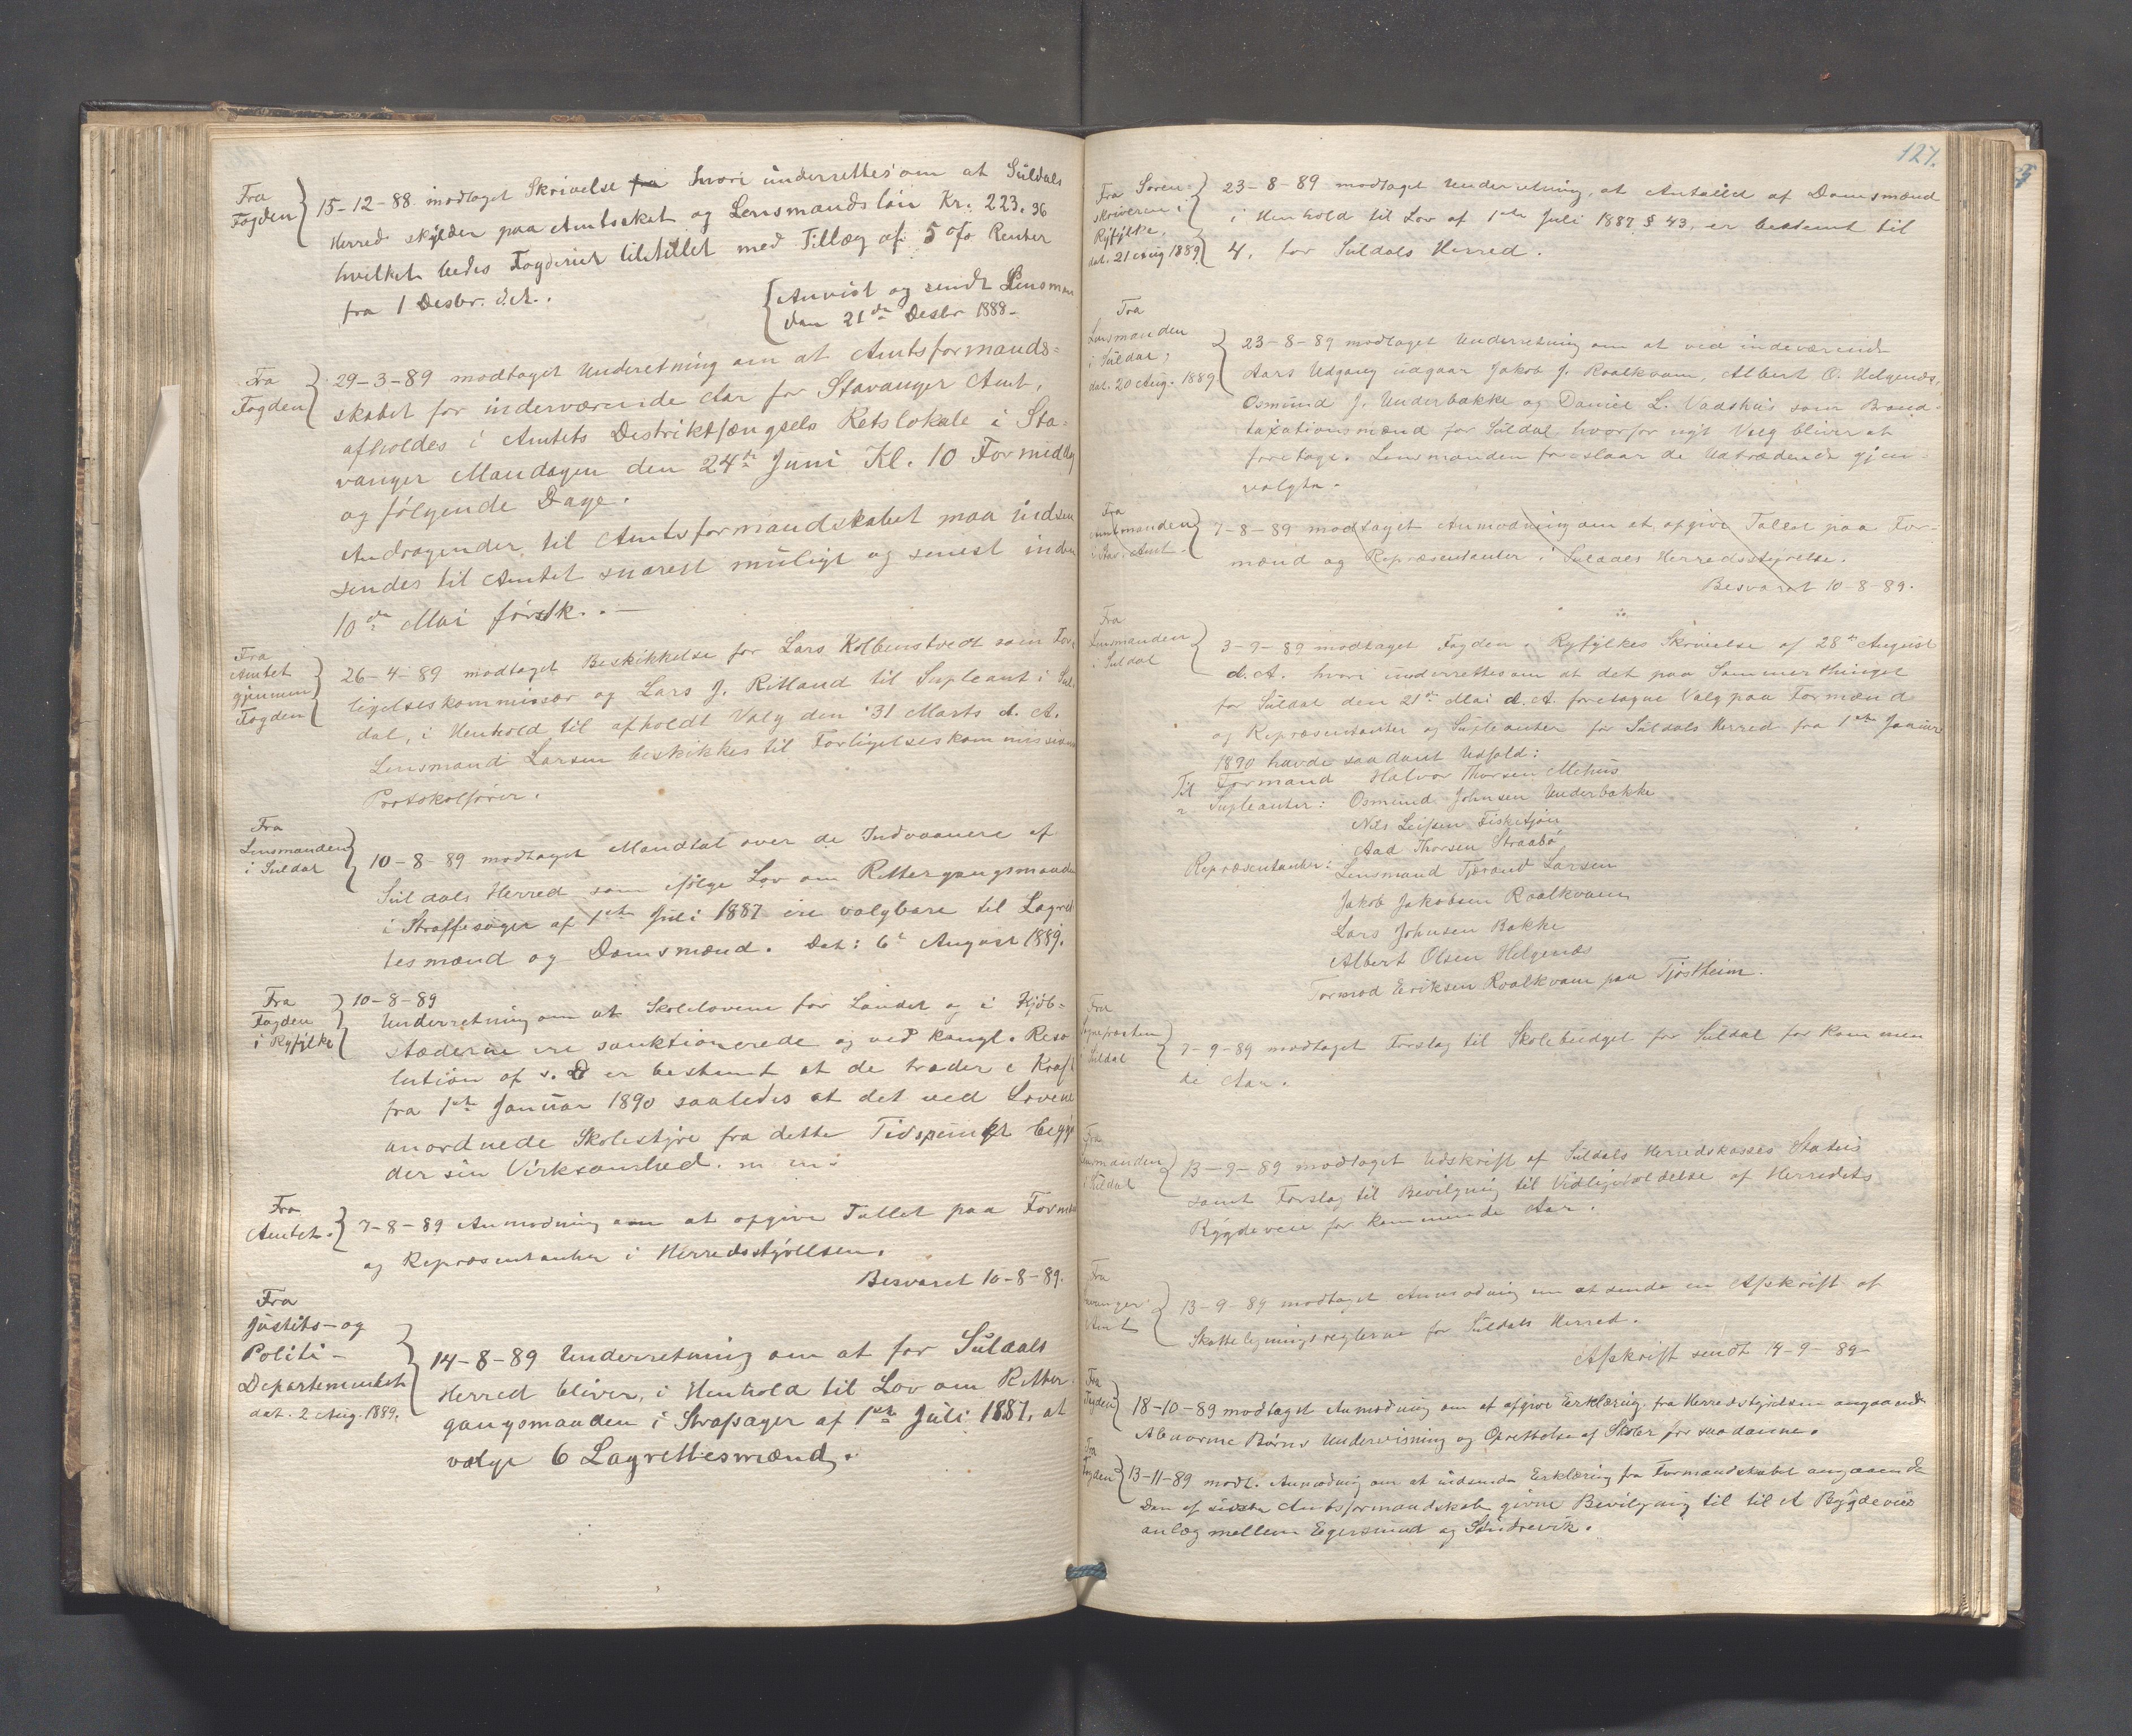 Fra
Fogden
15-12-88 modtaget Skrivelse fra hvori underrettes om at Suldals
Herred skylder paa Amtsskat og Lensmandsløn Kr. 223.36
hvilket bedes Fogderiet tilstillet med Tillæg af 5 % Renter
fra 1 Desbr. d.A.
Anvist og sendt Lensman
den 21de Desbr 1888.
Fra
Fogden
29-3-89 modtaget Underetning om at Amtsformands-
skabet for inderværende Aar for Stavanger Amt,
afholdes i Amtets Distriktsfængsels Retslokale i Sta-
vanger Mandagen den 24de Juni Kl. 10 Formiddag
og følgende Dage.
Andragender til Amtsformandskabet maa indsen
sendes til Amtet snarest muligt og senest inden
10de Mai førstk. –
Fra
Amtet
gjennem
Fogden
26-4-89 modtaget Beskikkelse for Lars Kolbenstvedt som For-
ligelseskommissær og Lars J. Ritland til Supleant i Sul-
dal, i Henhold til afholdt Valg den 31 Marts d. A.
Lensmand Larsen beskikkes til Forligelseskommissionens
Protokolfører.
Fra
Lensmanden
i Suldal
10-8-89 modtaget Mandtal over de Indvaanere af
Suldals Herred som ifølge Lov om Rettergangsmaaden
i Straffesager af 1ste Juli 1887 ere valgbare til Lagret-
tesmænd og Domsmænd. Dat: 6te August 1889.
Fra
Fogden
i Ryfylke
10-8-89
Underretning om at Skolelovene for Landet og i Kjøb-
stæderne ere sanktionerede og ved kongl. Reso
lution af s. D er bestemt at de træder i Kraft
fra 1ste Januar 1890 saaledes at det ved Lovene
anordnede Skolestyre fra dette Tidspunkt begyn
der sin Virksomhed. m m:
Fra
Amtet.
7-8-89 Anmodning om at opgive Tallet paa Formænd
og Repræsentanter i Herredsstyrelsen.
Besvaret 10-8-89.
Fra
Justits- og
Politi-
Departementet
dat. 2 Aug. 1889.
14-8-89 Underretning om at for Suldals
Herred bliver, i Henhold til Lov om Retter-
gangsmaaden i Strafsager af 1ste Juli 1887, at
vælge 6 Lagrettesmænd.
127.
Fra Soren-
skriveren i
Ryfylke,
dat. 21 Aug 1889
23-8-89 modtaget Underretning, at Antallet af Domsmænd
i Henhold til Lov af 1ste Juli 1887 § 43, er bestemt til
4, for Suldals Herred.
Fra
Lensmanden
i Suldal,
dat. 20 Aug. 1889
23-8-89 modtaget Underretning om at ved indeværende
Aars Udgang udgaar Jakob J. Roalkvam, Albert O. Helgenæs,
Osmund J. Underbakke og Daniel L. Vadshus som Brand-
taxationsmænd for Suldal hvorfor nyt Valg bliver at
foretage. Lensmanden foreslaar de Udtrædende gjen-
valgte.
Fra
Amtmanden
i Stav. Amt.
7-8-89 modtaget Anmodning om at opgive Tallet paa For-
mænd og Repræsentanter i Suldals Herredsstyrelse.
Besvaret 10-8-89.
Fra
Lensmanden
i Suldal
3-9-89 modtaget Fogden i Ryfylkes Skrivelse af 28de August
d. A. hvori underrettes om at det paa Sommerthinget
for Suldal den 21de Mai d. A. foretagne Valg paa Formænd
og Repræsentanter og Supleanter for Suldals Herred fra 1ste Januar
1890 havde saadant Udfald:
Til Formænd Halvor Thorsen Mehus
" Supleanter: Osmund Johnsen Underbakke
Nils Leifsen Fisketjøn
Aad Thorsen Straabø
Repræsentanter: Lensmand Tjerand Larsen
Jakob Jakobsen Roalkvam
Lars Johnsen Bakke
Albert Olsen Helgenæs
Tormod Eriksen Roalkvam paa Tjøstheim.
Fra
Sognepræsten
i Suldal
7-9-89 modtaget Forslag til Skolebudget for Suldal for kommen
de Aar.
Fra
Lensmanden
i Suldal
13-9-89 modtaget Udskrift af Suldals Herredskasses Status
samt Forslag til Bevilgning til Vedligeholdelse af Herredets
Bygdeveie for kommende Aar.
Fra
Stavanger
Amt
13-9-89 modtaget Anmodning om at sende en Afskrift af
Skatteligningsreglerne for Suldals Herred.
Afskrift sendt 14-9-89
Fra
Fogden
18-10-89 modtaget Anmodning om at afgive Erklæring fra Herredsstyrelsen angaaende
Abnorme Børns Undervisning og Oprettelse af Skoler for saadanne.
Fra
Fogden
13-11-89 modt. Anmodning om at indsende Erklæring fra Formandskabet angaaende
den af sidste Amtsformandskab givne Bevilgning til til et Bygdeveis
anlæg mellem Egersund og Søndrevik.